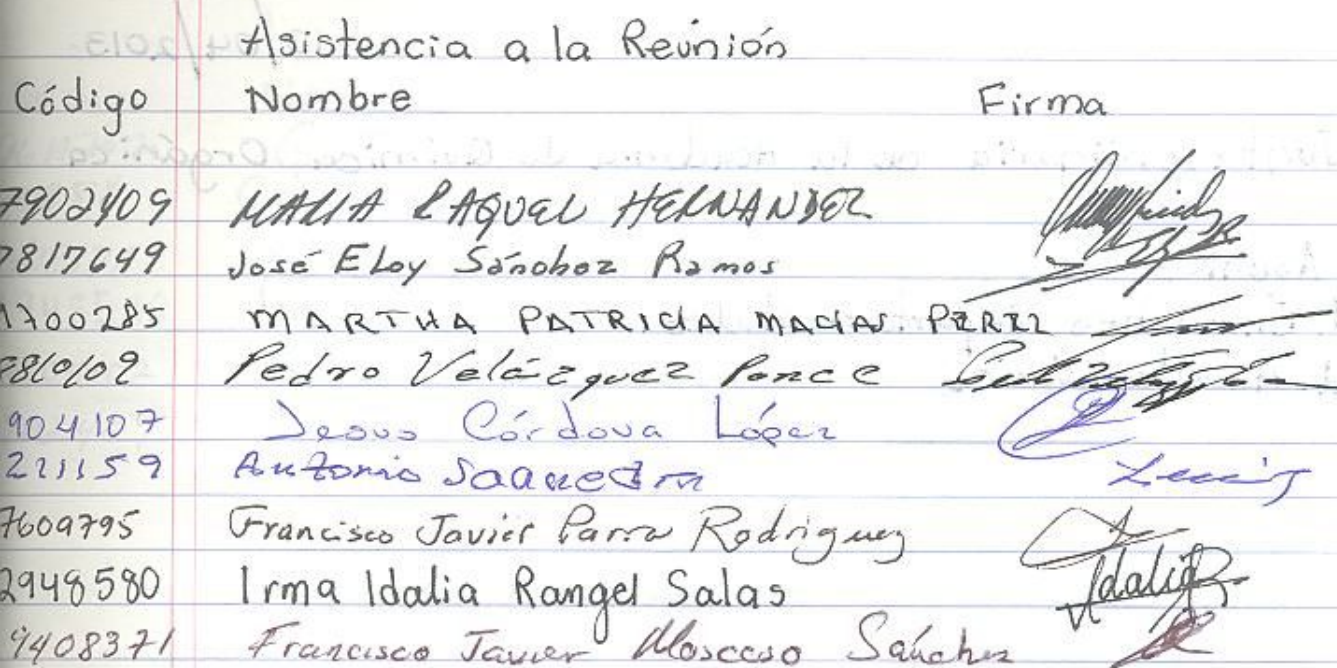 Asistencia a la Reunión
Código Nombre Firma
7902409 MARIA RAQUEL HERNANDEZ
7817649 José Eloy Sánchez Ramos
1700285 MARTHA PATRICIA MACIAS PEREZ
Pedro Velázquez Ponce
904107 Jesus Córdova López
221159 Antonio Saavedra
7609795 Francisco Javier Parra Rodriguez
2948580 Irma Idalia Rangel Salas Idalia
9408371 Francisco Javier Moscoso Sánchez